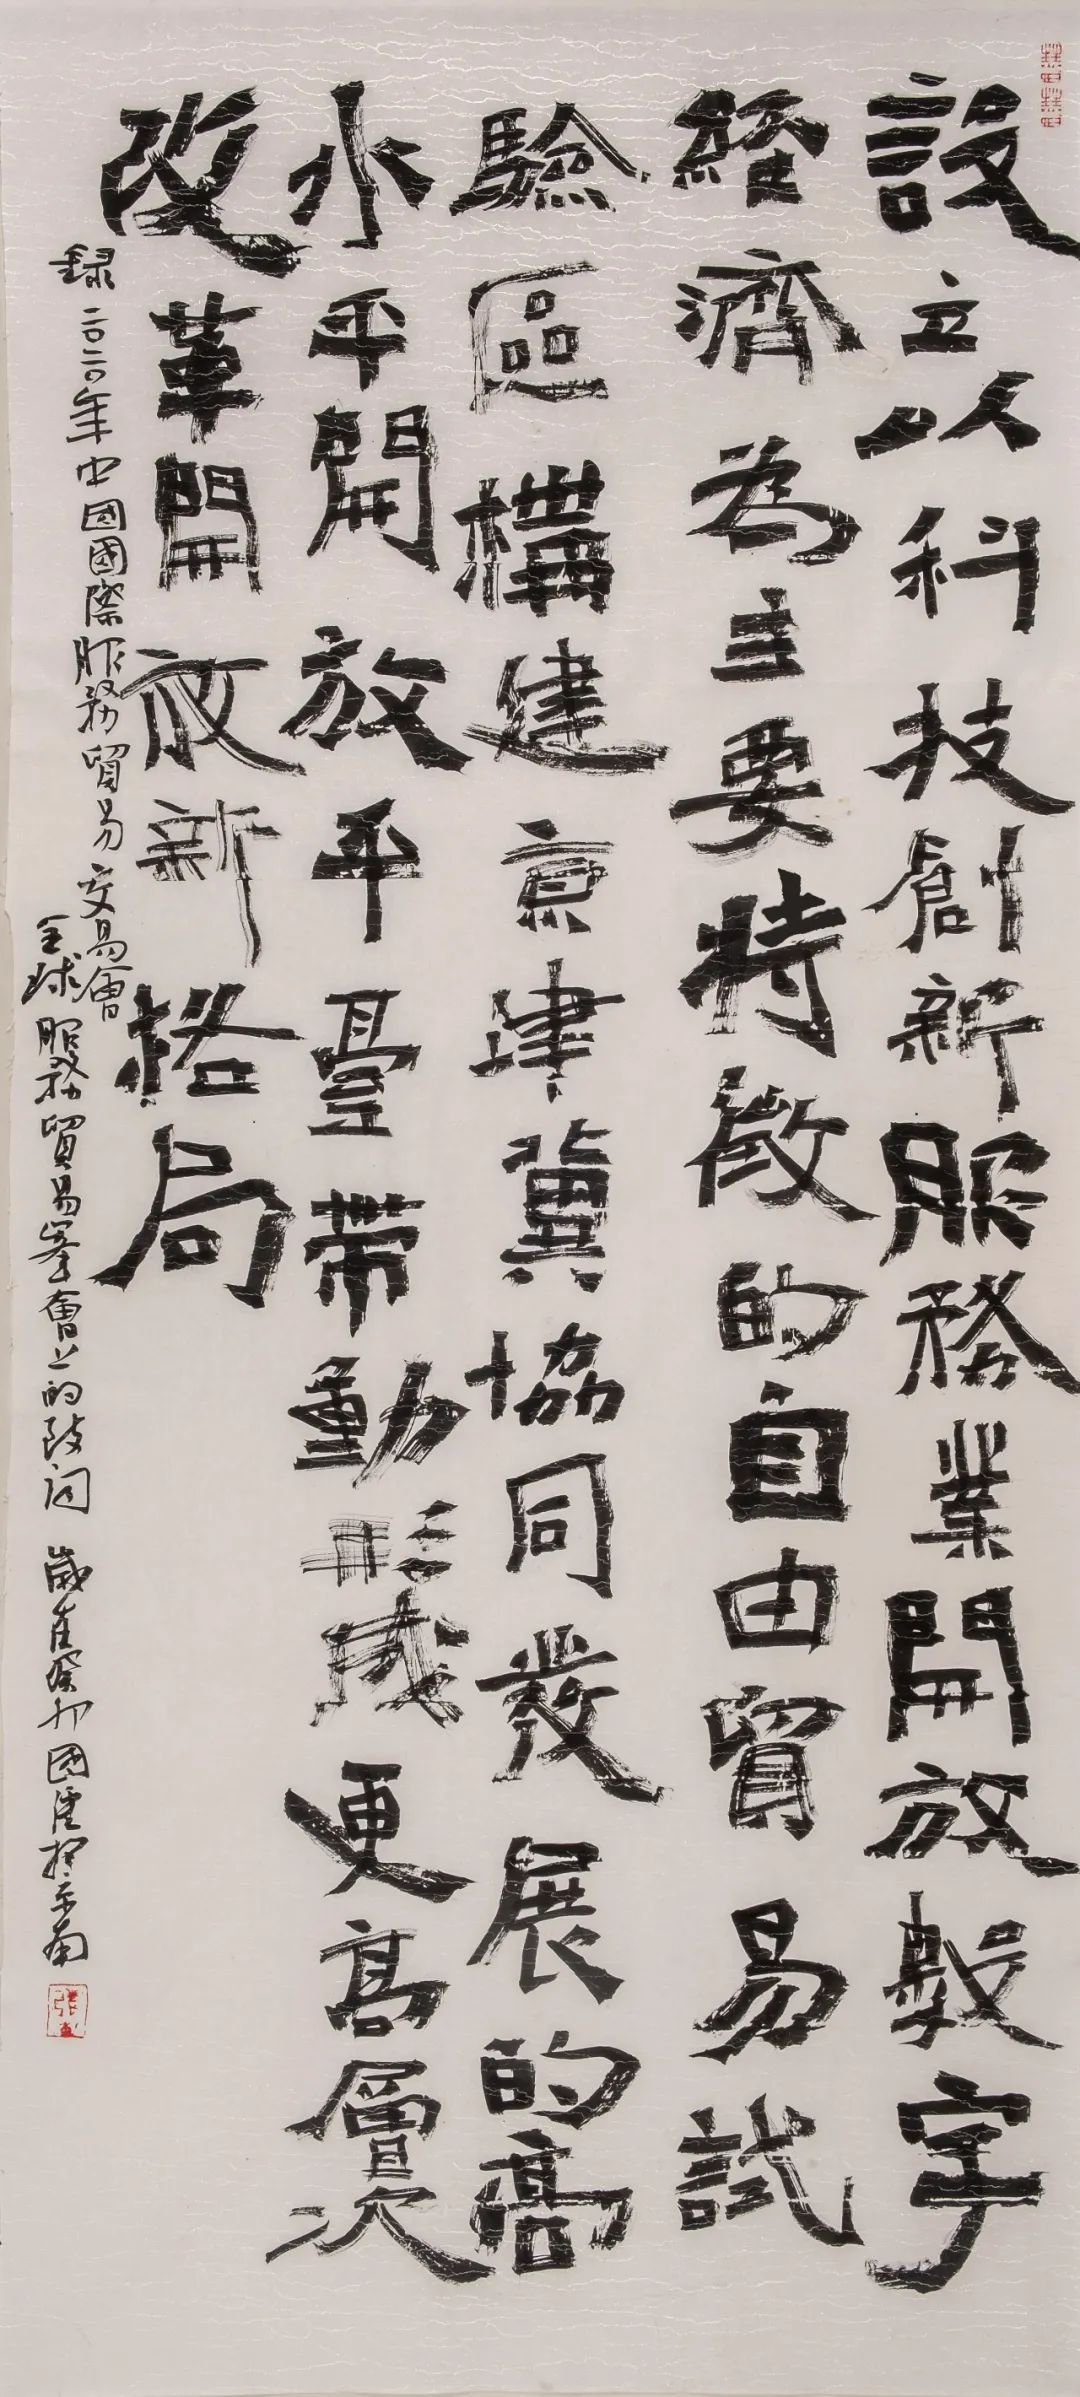 設立以科技創新服務業開放數字
經濟為主要特徵的自由貿易試
驗區構建京津冀協同發展的高
水平開放平臺帶動形成更高層次
改革開放新格局
錄二〇二〇年中國國際服務貿易交易會
全球服務貿易峯會上的致詞 歲在癸卯國